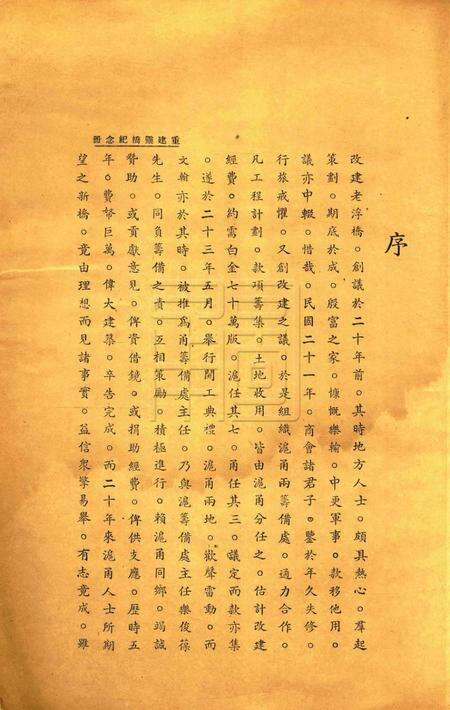 重建靈橋紀念冊
序
改建老浮橋。創議於二十年前。其時地方人士。頗具熱心。羣起
策劃。期底於成。殷富之家。慷慨樂輸。中更軍事。款移他用。
議亦中輟。惜哉。民國二十一年。商會諸君子。鑒於年久失修。
行旅戒懼。又創改建之議。於是組織滬甬兩籌備處。通力合作。
凡工程計劃。款項籌集。土地收用。皆由滬甬分任之。估計改建
經費。約需白金七十萬版。滬任其七。甬任其三。議定而款亦集
。遂於二十三年五月。舉行開工典禮。滬甬兩地。歡聲雷動。而
文翰亦於其時。被推爲甬籌備處主任。乃與滬籌備處主任樂俊葆
先生。同負籌備之責。互相策勵。積極進行。賴滬甬同鄉。竭誠
贊助。或貢獻意見。俾資借鏡。或捐助經費。俾供支應。歷時五
年。費帑巨萬。偉大建築。卒告完成。而二十年來滬甬人士所期
望之新橋。竟由理想而見諸事實。益信衆擎易舉。有志竟成。雖